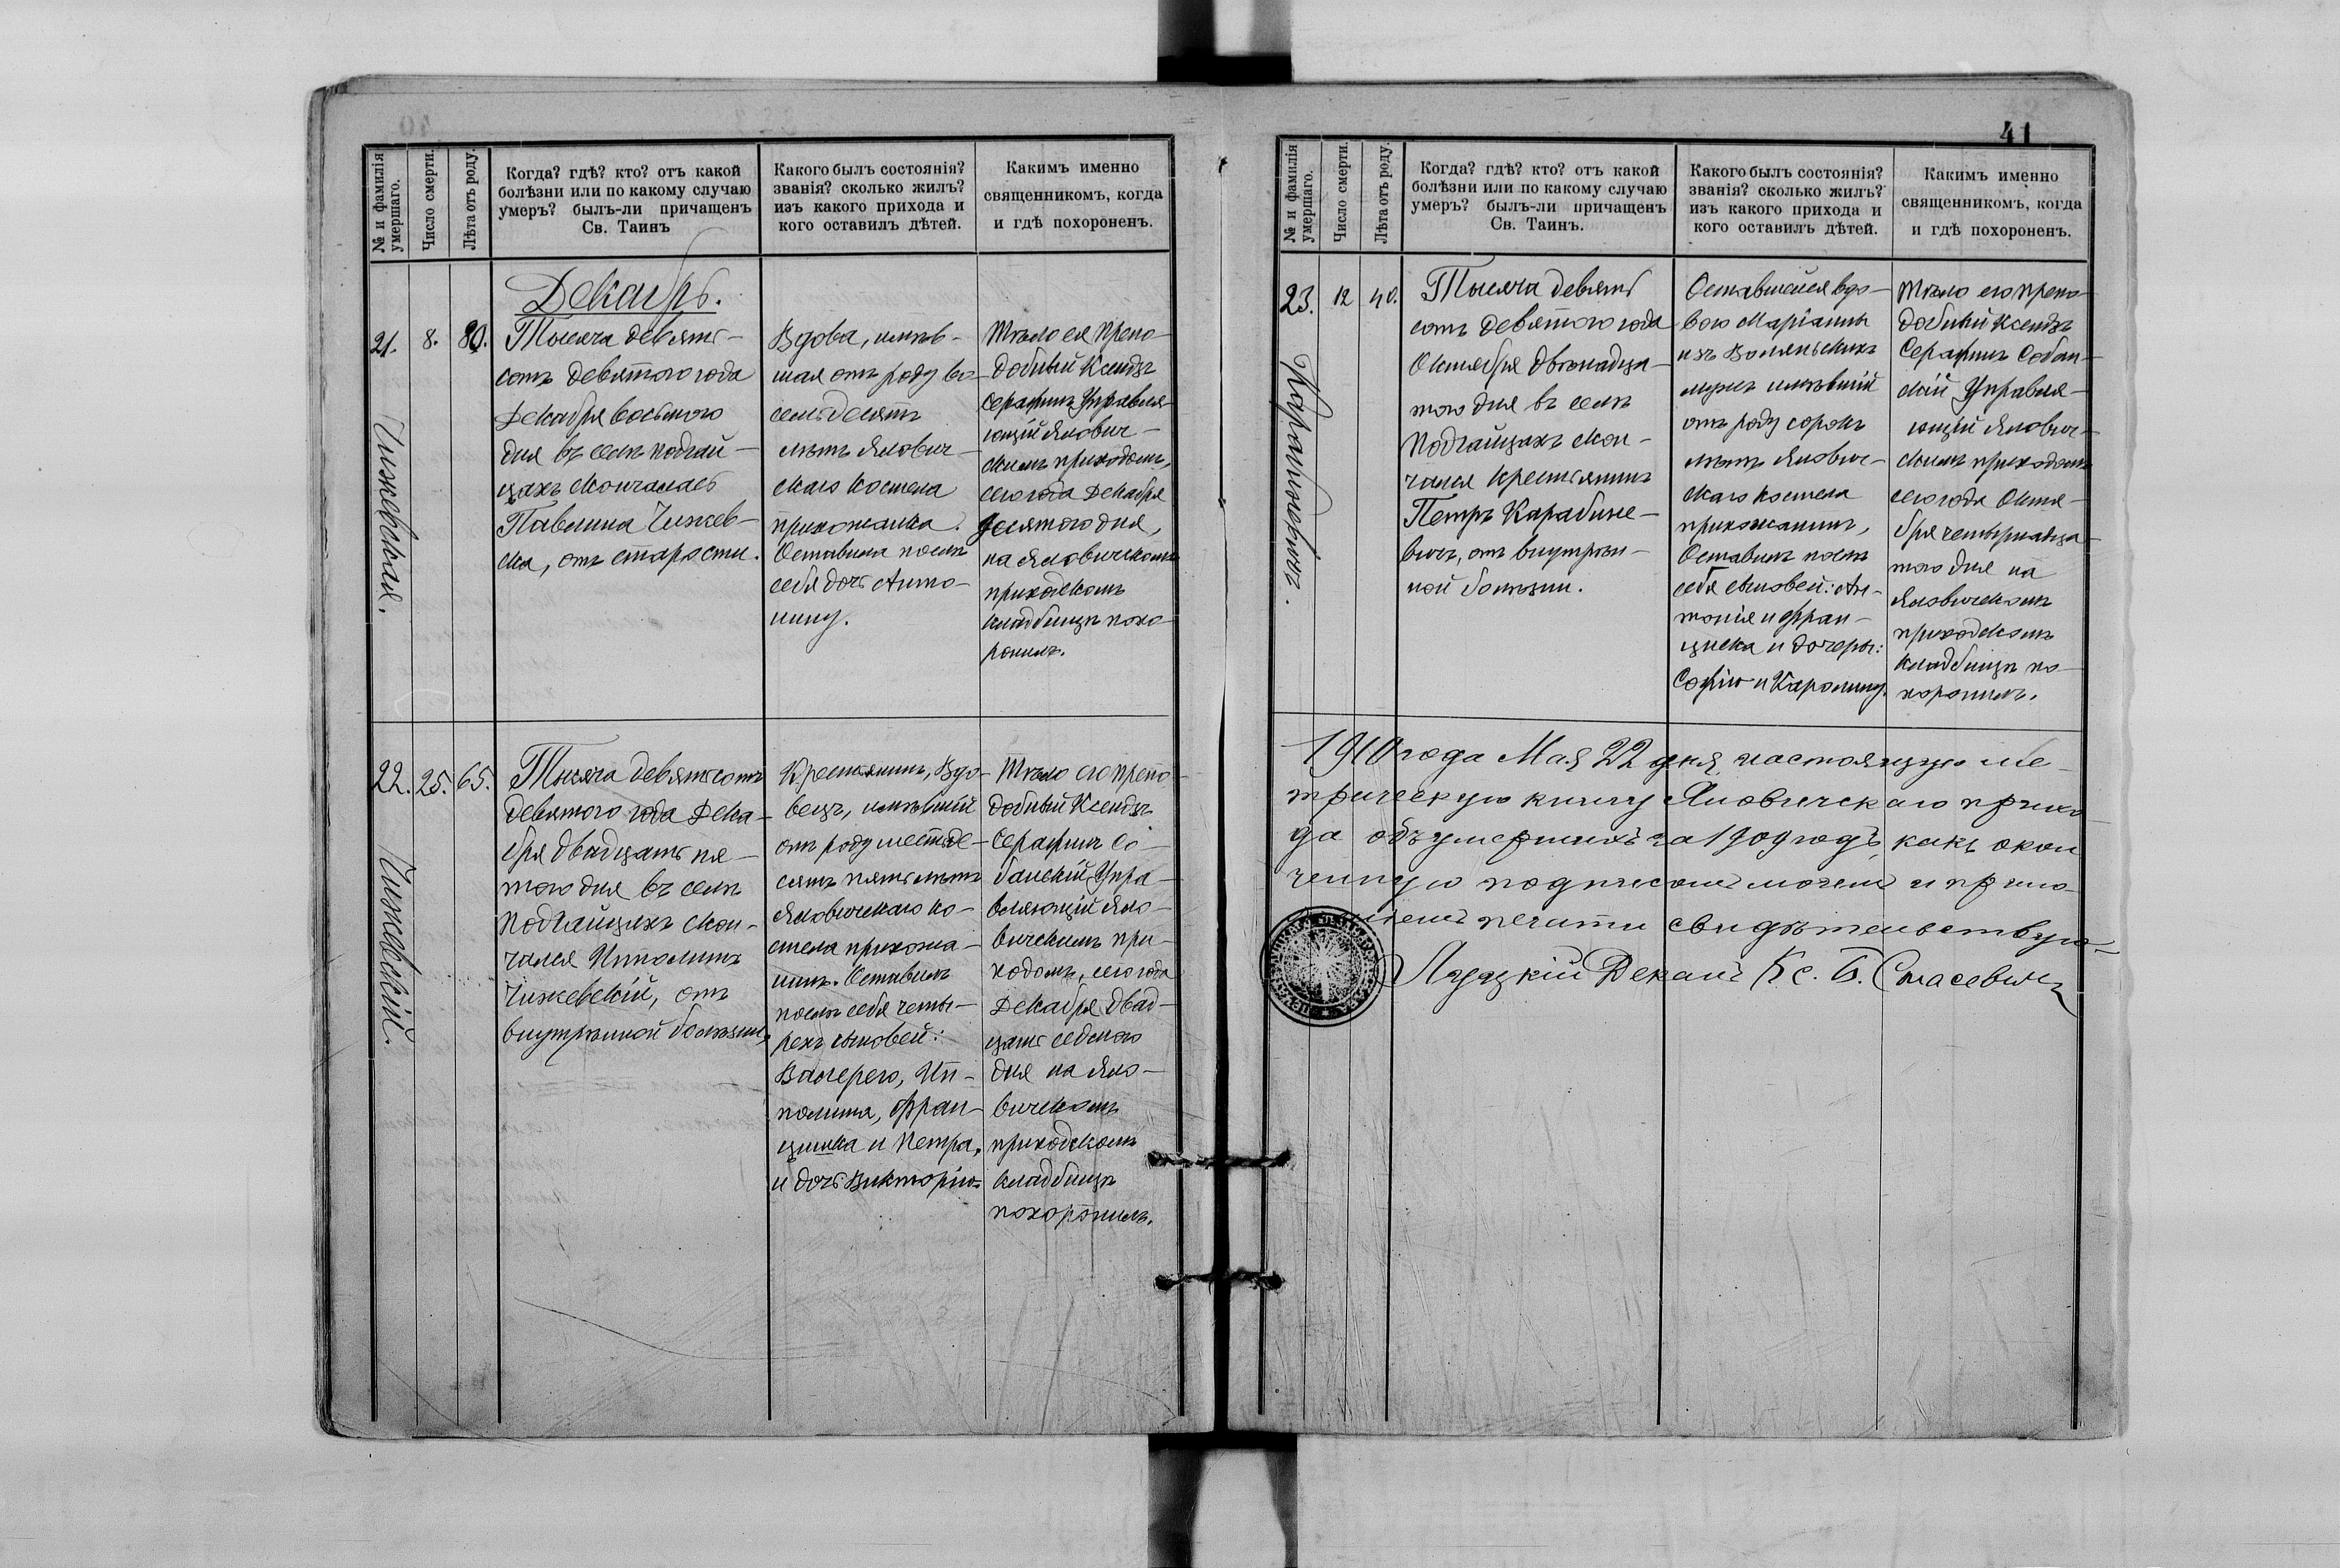 № и фамилія
умершаго.
Число смерти.
Лѣта отъ роду.
Когда? гдѣ? кто? отъ какой
болѣзни или по какому случаю
умеръ? былъ-ли причащенъ
Св. Таинъ
Какого былъ состоянія?
званія? сколько жилъ?
изъ какого прихода и
кого оставилъ дѣтей.
Какимъ именно
священникомъ, когда
и гдѣ похороненъ.
Декабрь.
21.
Чижевская.
8.
80.
Тысяча девять-
сотъ девятого года
Декабря восьмого
дня въ селѣ Подгай-
цахъ скончалась
Павлина Чижев-
ска, отъ старости.
Вдова, имѣв-
шая отъ роду во-
семьдесятъ
лѣтъ Ялович-
скаго костела
прихожанка.
Оставила послѣ
себя дочь Анто-
нину.
Тѣло ея препо-
добный Ксендзъ
Серафимъ Управля-
ющій Ялович-
скимъ приходомъ,
сего года Декабря
десятого дня,
на Яловическомъ
приходскомъ
кладбищѣ похо-
ронилъ.
22.
Чижевскій.
25.
65.
Тысяча девятьсотъ
девятого года Дека-
бря двадцать пя-
того дня въ селѣ
Подгайцахъ скон-
чался Ипполитъ
Чижевскій, отъ
внутрѣнной болѣзни,
Крестянинъ, Вдо-
вецъ, имѣвшій
отъ роду шестьде-
сятъ пять лѣтъ
Яловическаго ко-
стела прихожа-
нинъ. Оставилъ
послѣ себя четы-
рехъ сыновей:
Валерего, Ип-
полита, Фран-
цишка и Петра,
и дочь Викторію
Тѣло его препо-
добный Ксендзъ
Серафимъ Со-
банскій Упра-
вляющій Яло-
вическимъ при-
ходомъ, сего года
Декабря двад-
цать седмого
дня на Яло-
вическомъ
приходскомъ
кладбищѣ
похоронилъ.
41
№ и фамилія
умершаго.
Число смерти.
Лѣта отъ роду.
Когда? гдѣ? кто? отъ какой
болѣзни или по какому случаю
умеръ? былъ-ли причащенъ
Св. Таинъ.
Какого былъ состоянія?
званія? сколько жилъ?
изъ какого прихода и
кого оставилъ дѣтей.
Какимъ именно
священникомъ, когда
и гдѣ похороненъ.
23.
12
40.
Тысяча девять
сотъ девятого года
Октября двѣнадца-
того дня въ селѣ
Подгайцахъ скон-
чался крестьянинъ
Петръ Карабине-
вичъ, отъ внутрѣн-
ной болѣзни.
Оставшейся вдо-
вою Маріанны
изъ
мужъ имѣвшій
отъ роду сорокъ
лѣтъ Ялович-
скаго костела
прихожанинъ,
Оставилъ послѣ
себя сыновей: Ан-
тонія и Фран-
циска и дочеры:
Софію и Каролину.
Тѣло его препо-
добный Ксендзъ
Серафимъ Собан-
скій Управля-
ющій Ялович-
скимъ приходомъ
сего года Октя-
бря четырнадца-
того дня на
Яловическомъ
приходскомъ
кладбищѣ по-
хоронилъ.
1910 года Мая 22 дня, настоящую ме-
трическую книгу Яловичскаго прихо
да объ умершихъ за 1909 годъ, какъ окон
ченную подписомъ моемъ и прило-
женіемъ печати свидѣтельствую
Луцкій Деканъ Кс. Б. Стасевичъ